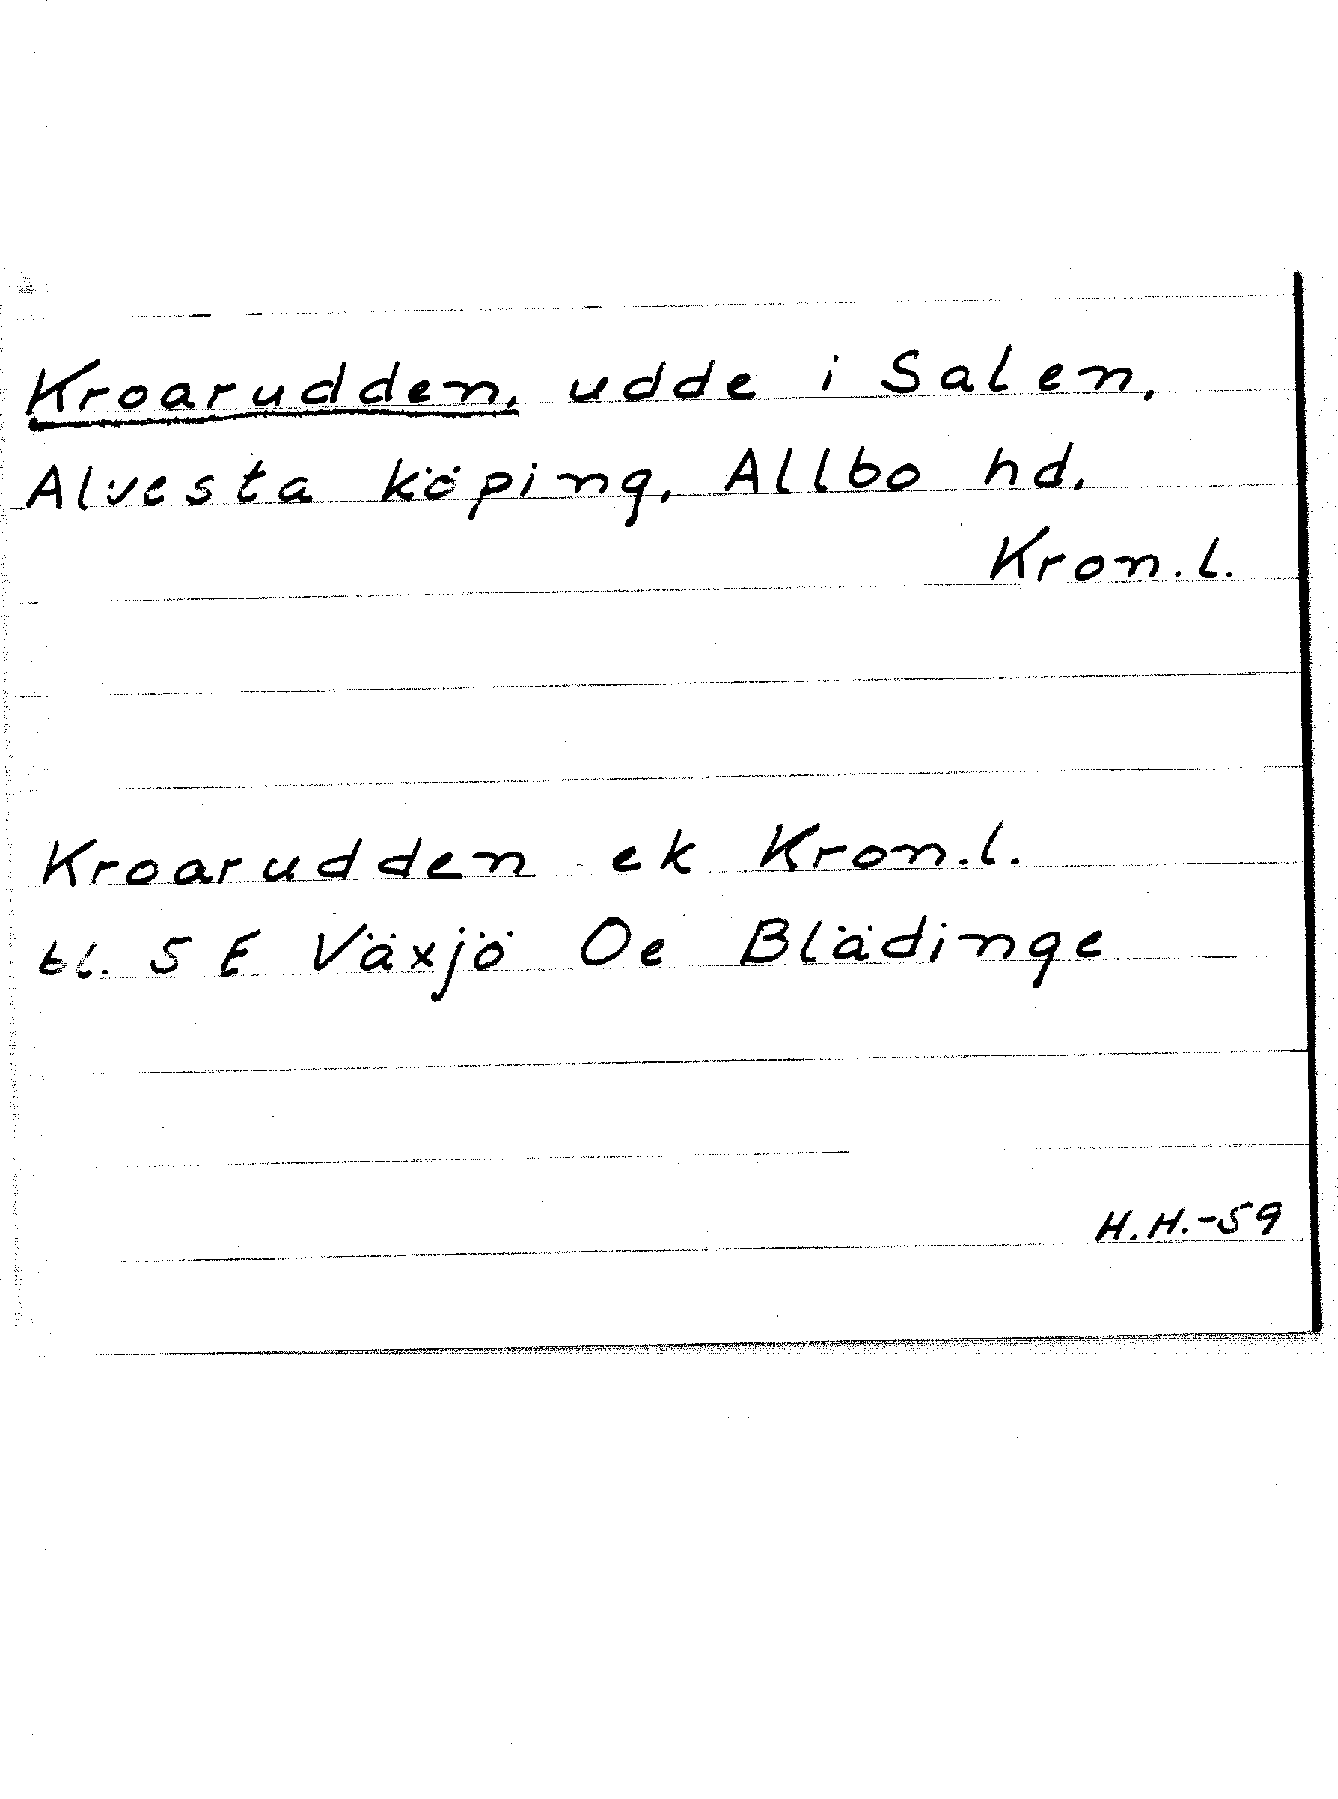 Kroarudden, udde i Salen,
Alvesta köping, Allbo hd,
Kron.l.
Kroarudden ek Kron.l.
bl. 5 E Växjö Oe Blädinge
H.H.-59